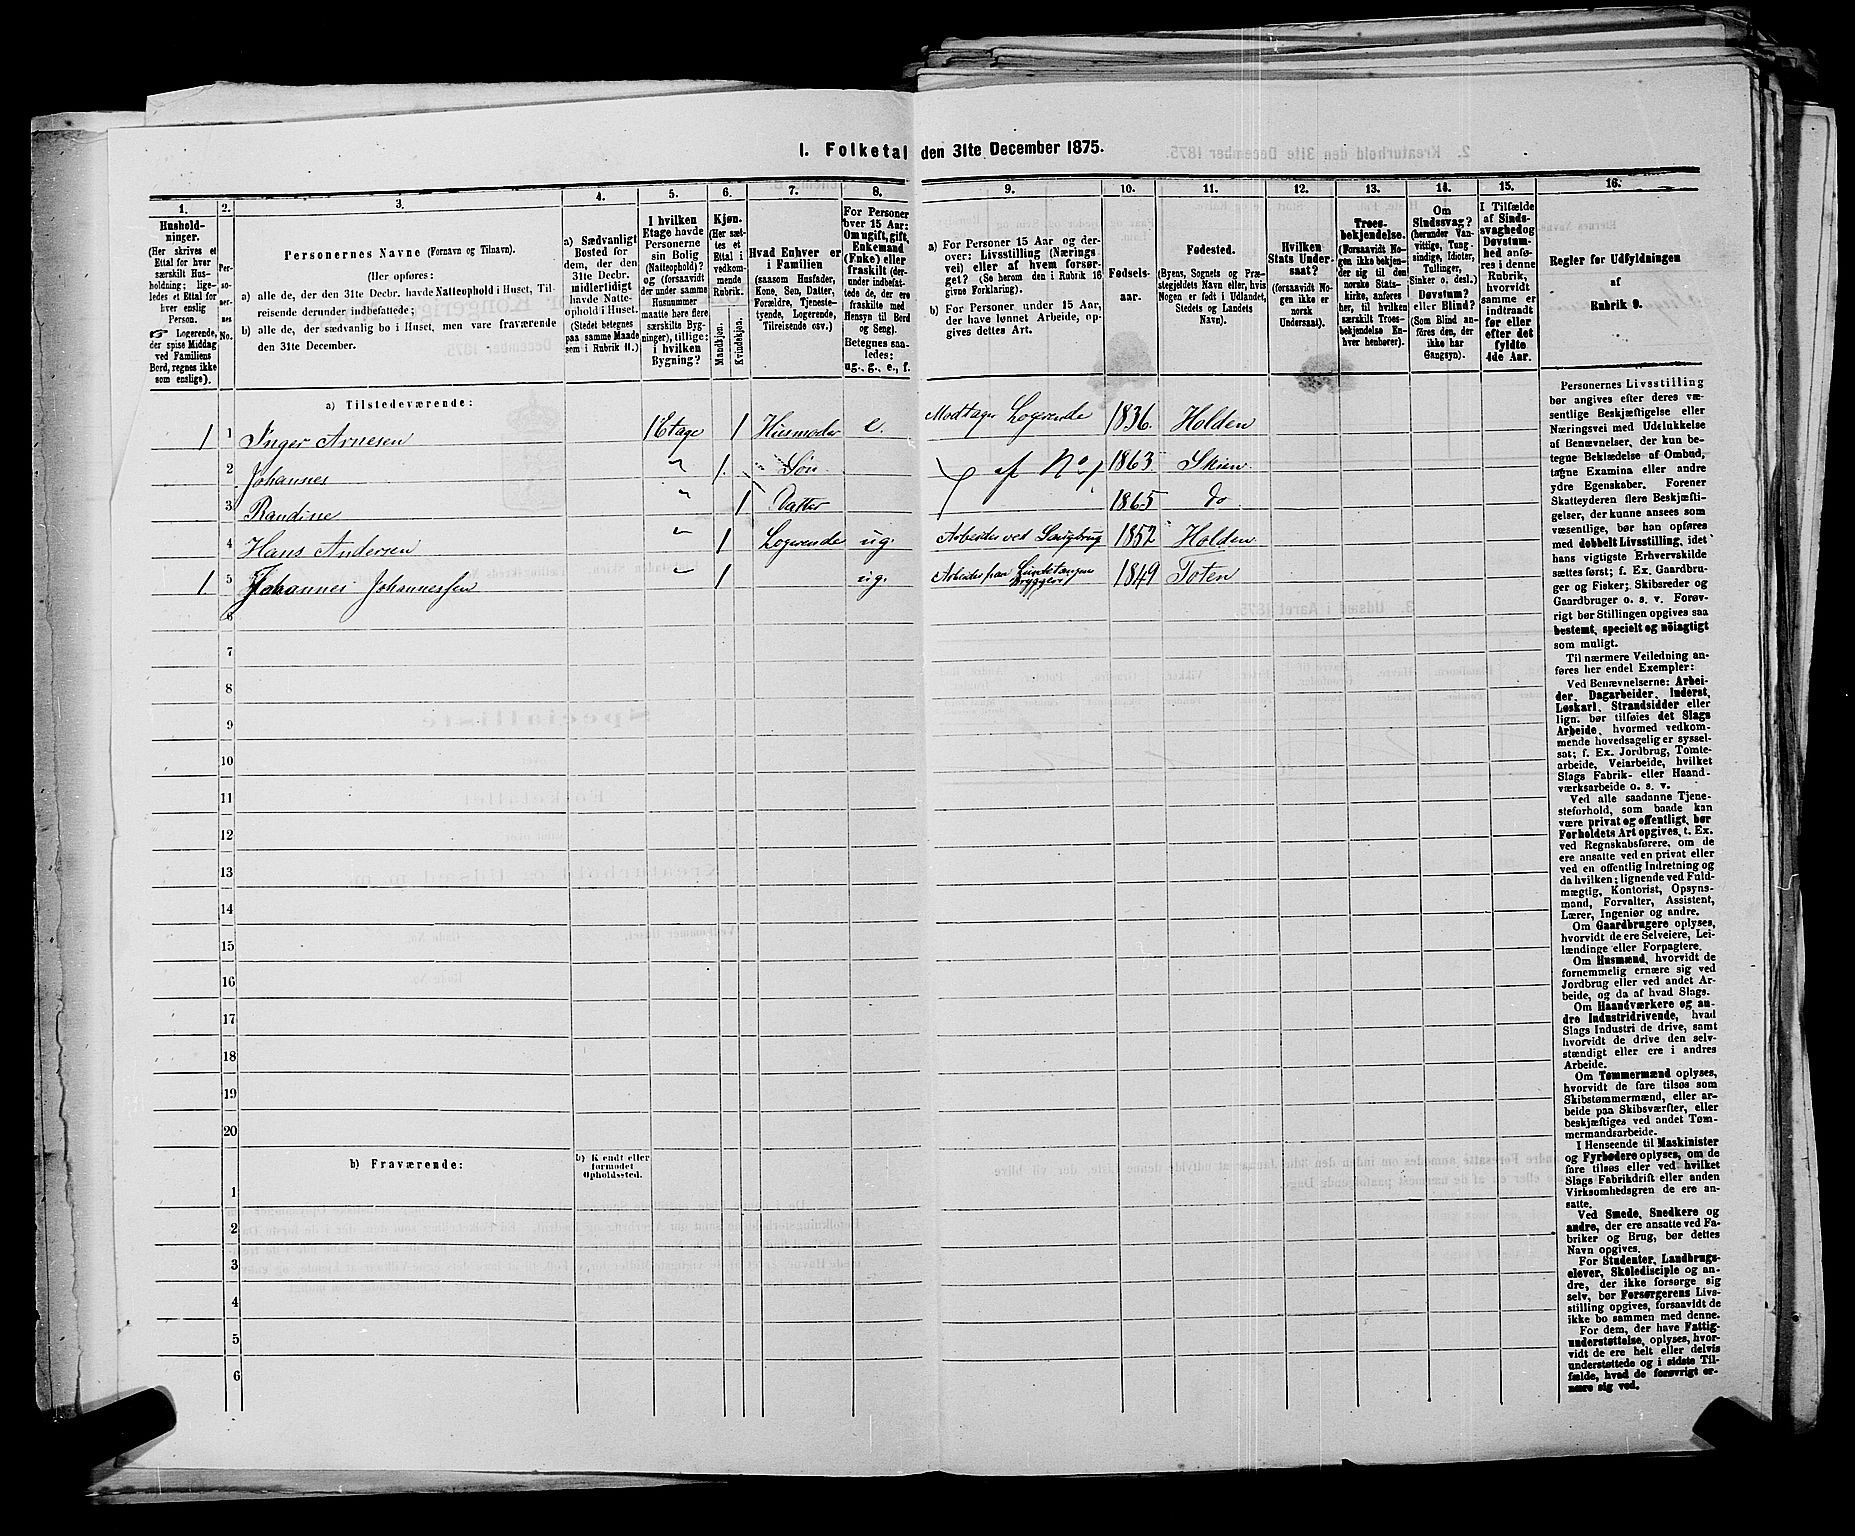 I. Folketal den 31te December 1875.
1. 2. 3. 4. 5. 6. 7. 8. 9. 10. 11. 12. 13. 14. 15. 16.
Hushold-
ninger.
(Her skrives et
Ettal for hver
særskilt Hus-
holdning; lige-
ledes et Ettal for
hver enslig
Person.
☞ Logerende,
der spise Middag
ved Familiens
Bord, regnes ikke
som enslige).
Per-
so-
ner-
nes
No.
Personernes Navne (Fornavn og Tilnavn).
(Her opføres:
a) alle de, der den 31te Decbr. havde Natteophold i Huset, Til-
reisende derunder indbefattede;
b) alle de, der sædvanlig bo i Huset, men vare fraværende
den 31te December.
a) Sædvanligt
Bosted for
dem, der den
31te Decbr.
midlertidigt
havde Natte-
ophold i Huset.
(Stedet betegnes
paa samme Maade
som i Rubrik 11.)
I hvilken
Etage havde
Personerne
sin Bolig
(Natteophold)?
og (forsaavidt
der under samme
Husnummer
maatte høre flere
særskilte Byg-
ninger), tillige:
i hvilken
Bygning?
Kjøn.
(Her sæt-
tes et
Ettal i
vedkom-
mende
Rubrik.
Mandkjøn.
Kvindekjøn.
Hvad Enhver er
i Familien
(saasom Husfader,
Kone, Søn, Datter,
Forældre, Tjeneste-
tyende, Logerende,
Tilreisende osv.)
For Personer
over 15 Aar:
Om ugift, gift,
Enkemand
(Enke) eller
fraskilt (der-
under indbefat-
tede de, der ere
fraskilte med
Hensyn til Bord
og Seng).
Betegnes saa-
ledes:
ug., g., e., f.
a) For Personer 15 Aar og der-
over: Livsstilling (Nærings-
vei) eller af hvem forsør-
get? (Se herom den i Rubrik 16
givne Forklaring).
b) For Personer under 15 Aar,
der have lønnet Arbeide, op-
gives dettes Art.
Fødsels-
aar.
Fødested.
(Byens, Sognets og Præ-
stegjeldets Navn eller, hvis
Nogen er født i Udlandet,
Stedets og Landets
Navn).
Hvilken
Stats Under-
saat?
(forsaavidt No-
gen ikke er
norsk
Undersaat).
Troes-
bekjendelse.
(Forsaavidt No-
gen ikke bekjen-
der sig til den
norske Stats-
kirke, anføres
her, til hvilken
særskilt Troes-
bekjendelse En-
hver henhører).
Om
Sindssvag?
(herunder Van-
vittige, Tung-
sindige, Idioter,
Tullinger,
Sinker o, desl.)
Døvstum?
eller Blind?
(Som Blind an-
føres den, der
ikke har
Gangsyn).
I Tilfælde
af Sinds-
svaghed og
Døvstum-
hed anfø-
res i denne
Rubrik,
hvorvidt
samme er
indtraadt
før eller
efter det
fyldte
4de Aar.
Regler for Udfyldningen
af
Rubrik 9.
a) Tilstedeværende:
1 1 Inger Arnesen 1 Etage 1 Husmoder e. Modtager Logerende 1836. Holden
2 Johannes " 1. Søn af No 1 1863 Skien
3 Randine " 1 Datter 1865 Do
4 Hans Andersen " 1 Logerende ug. Arbeider ved Saugbrug 1852 Holden
1. 5 Johannes Johannessen " 1 ug. Arbeider paa Lundetangen Bryggeri 1849 Toten
6
7
8
9
10
11
12
13
14
15
16
17
18
19
20
b) Fraværende:
b) Kjendt eller
formodet
Opholdssted.
1
2
3
4
5
6
Personernes Livsstilling
bør angives efter deres væ-
sentlige Beskjæftigelse eller
Næringsvei med Udelukkelse
af Benævnelser, der kun be-
tegne Beklædelse af Ombud,
tagne Examina eller andre
ydre Egenskaber. Forener
Skatteyderen flere Beskjæfti-
gelser, der kunne ansees som
væsentlige, bør han opføres
med dobbelt Livsstilling, idet
hans vigtigste Erhvervskilde
sættes først; f. Ex. Gaardbru-
ger og Fisker; Skibsreder og
Gaardbruger o. s. v. Forøv-
rigt bør Stillingen opgives saa
bestemt, specielt og nöiagtigt
som muligt.
Til nærmere Veiledning an-
føres her endel Exempler:
Ved Benævnelserne: Arbei-
der, Dagarbeider, Inderst,
Løskarl, Strandsidder eller
lign. bør tilføies det Slags
Arbeide, hvormed vedkom-
mende hovedsagelig er syssel-
sat; f. Ex. Jordbrug, Tomte-
arbeide, Veiarbeide, hvilket
Slags Fabrik- eller Haand-
værksarbeide o. s. v.
Ved alle saadanne Tjene-
steforhold, som baade kan
være privat og offentligt, bør
Forholdets Art opgives, t. Ex.
ved Regnskabsførere, om de
ere ansatte ved en privat eller
ved en offentlig Indretning og
da hvilken; lignende ved Fuld-
mægtig, Kontorist, Opsyns-
mand, Forvalter, Assistent,
Lærer, Ingeniør og andre.
Om Gaardbrugere oplyses,
hvorvidt de ere Selveiere, Lei-
lændinge eller Forpagtere.
Om Husmænd, hvorvidt de
fornemmelig ernære sig ved
Jordbrug eller ved andet Ar-
beide, og da af hvad Slags.
Om Haandværkere og an-
dre Industridrivende, hvad
Slags Industri de drive, samt
hvorvidt de drive den selv-
stændigt eller ere i andres
Arbeide.
Om Tømmermænd oplyses,
hvorvidt de fare tilsøs som
Skibstømmermænd, eller ar-
beide paa Skibsværfter, eller
beskjæftiges ved andet Tøm-
mermandsarbeide.
I Henseende til Maskinister
og Fyrbødere oplyses, om de
fare tilsøs eller ved hvilket
Slags Fabrikdrift eller anden
Virksomhedsgren de ere an-
satte.
Ved Smede, Snedkere og
andre, der ere ansatte ved Fa-
briker og Brug, bør dettes
Navn opgives.
For Studenter, Landbrugs-
elever, Skoledisciple og an-
dre, der ikke forsørge sig
selv, bør Forsørgerens Livs-
stilling opgives, forsaavidt de
ikke bo sammen med denne.
For dem, der have Fattig-
understøttelse, oplyses, hvor-
vidt de ere helt eller delvis
understøttede og i sidste Til-
fælde, hvad de forøvrigt er-
nære sig ved.